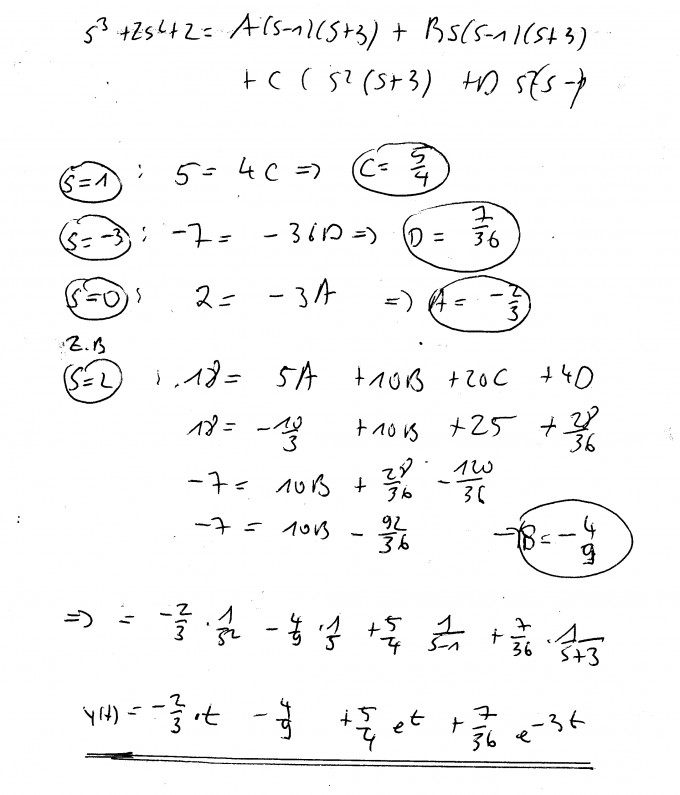 s³ + 2s² + 2 = A(s-1)(s+3) + Bs(s-1)(s+3)
+ C ( s² (s+3) + D s²(s-1)
s=1 : 5 = 4C => C = 5/4
s=-3 : -7 = -36D => D = 7/36
s=0 : 2 = -3A => A = -2/3
z.B
s=2 : 18 = 5A + 10B + 20C + 4D
18 = -10/3 + 10B + 25 + 28/36
-7 = 10B + 28/36 - 120/36
-7 = 10B - 92/36 → B = -4/9
=> = -2/3 · 1/s² - 4/9 · 1/s + 5/4 1/s-1 + 7/36 · 1/s+3
y(t) = -2/3 · t - 4/9 + 5/4 e^t + 7/36 e^-3t